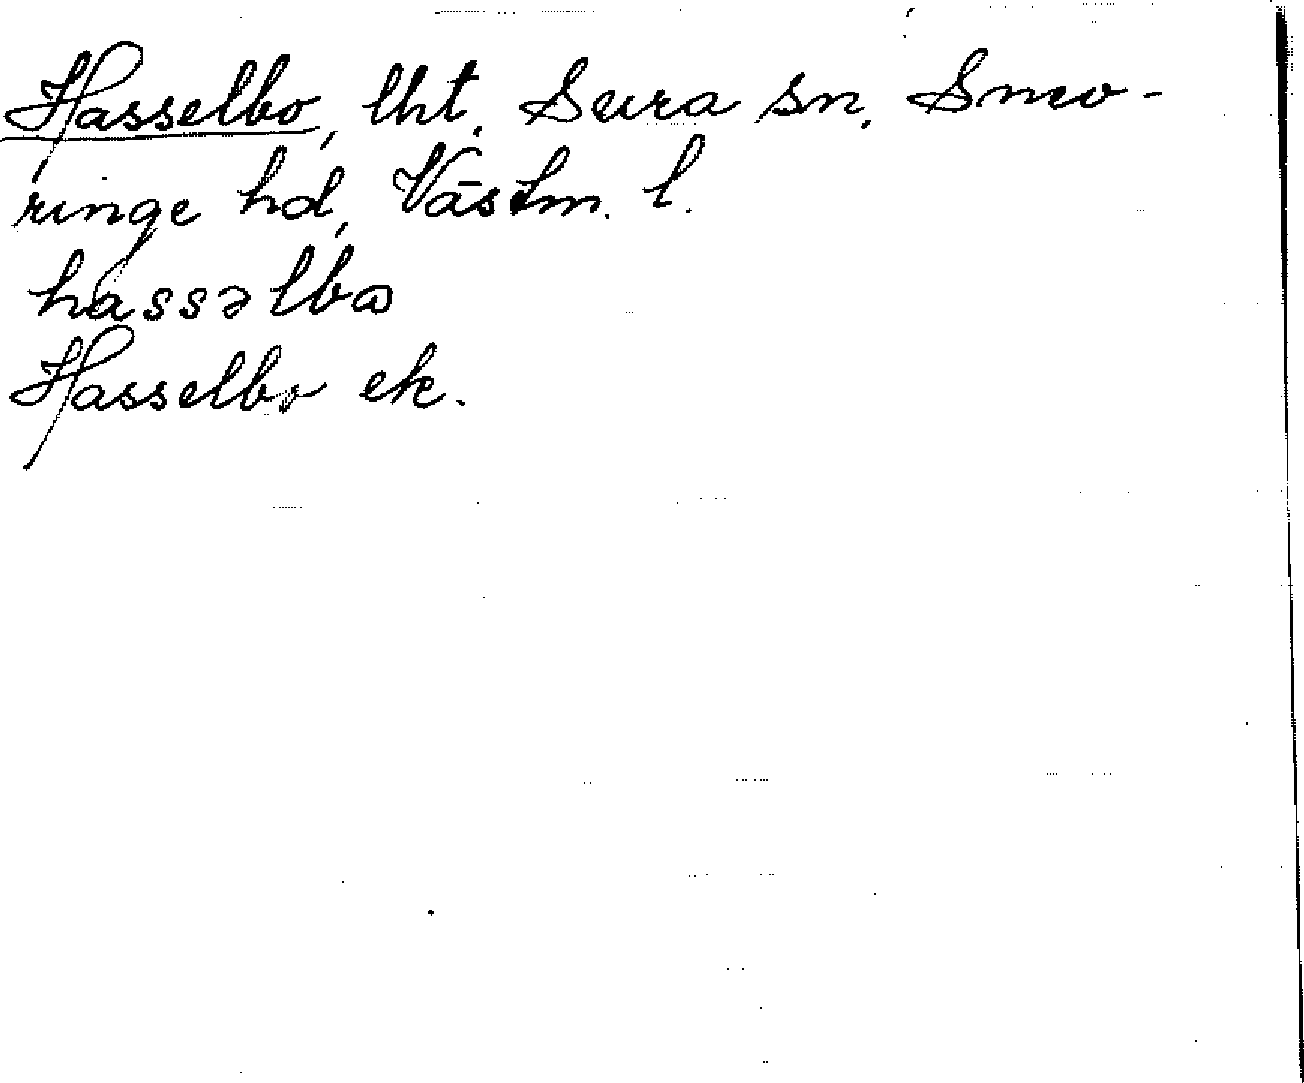 Hasselbo, lht, Sura sn, Snev-
ringe hd, Västm. l.
hassəlbɷ
Hasselbo ek.